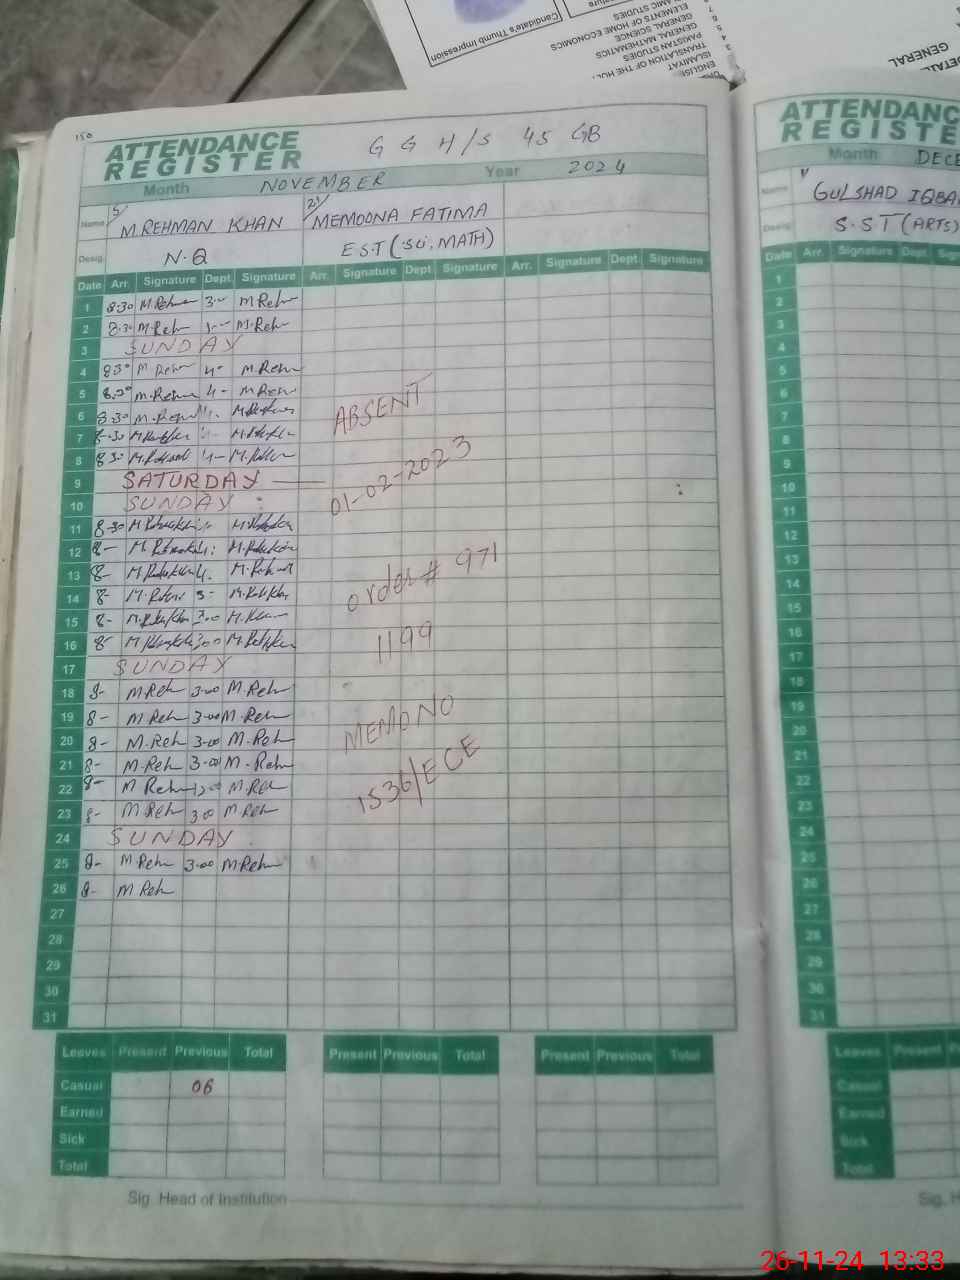 Candidate's Thumb Impression
ISLAMIC STUDIES
ELEMENTS OF HOME ECONOMICS
GENERAL SCIENCE
GENERAL MATHEMATICS
PAKISTAN STUDIES
TRANSLATION OF THE
ISLAMIYAT
GENERAL
150
ATTENDANCE
REGISTER
G G H/S 45 GB
Month NOVEMBER Year 2024
Name 5 M.REHMAN KHAN 21 MEMOONA FATIMA
Desig. N.Q E.S.T (Sci, MATH)
Date Arr. Signature Dept Signature Arr. Signature Dept Signature Arr. Signature Dept. Signature
1 8:30 M Reh M Reh
2 8:30 M.Reh M.Reh
3 SUNDAY
4 830 M Reh 4- M.Reh
5 8:30 M.Reh 4- M Reh
6 8:30
7 8-30
8 830
9 SATURDAY
10 SUNDAY :
11 8-30
12 8-
13 8-
14 8-
15 8- 3:00
16 8- 300
17 SUNDAY
18 8- M Reh 3-00 M.Reh
19 8- M Reh 3-00 M.Reh
20 8- M.Reh 3-00 M.Reh
21 8- M.Reh 3-00 M.Reh
22 8- M Reh M.Reh
23 8- M Reh 300 M Reh
24 SUNDAY
25 8- M.Reh 3-00 M.Reh
26 8- M Reh
27
28
29
30
31
ABSENT
01-02-2023
order # 971
1199
MEMO NO
1536/ECE
Leaves Present Previous Total Present Previous Total Present Previous Total
Casual 06
Earned
Sick
Total
Sig. Head of Institution
ATTENDANC
REGISTE
Month DECE
Name GULSHAD IQBA
Desig. S.S.T (ARTS)
Date Arr. Signature Dept. Sig
1
2
3
4
5
6
7
8
9
10
11
12
13
14
15
16
17
18
19
20
21
22
23
24
25
26
27
28
29
30
31
Leaves Present
Casual
Earned
Sick
Total
Sig. H
26-11-24 13:33